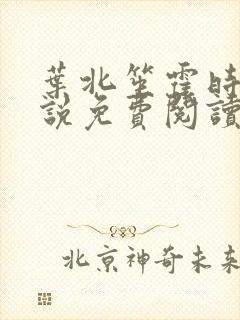 葉北笙霍時
說免費閱讀
北京神奇未来